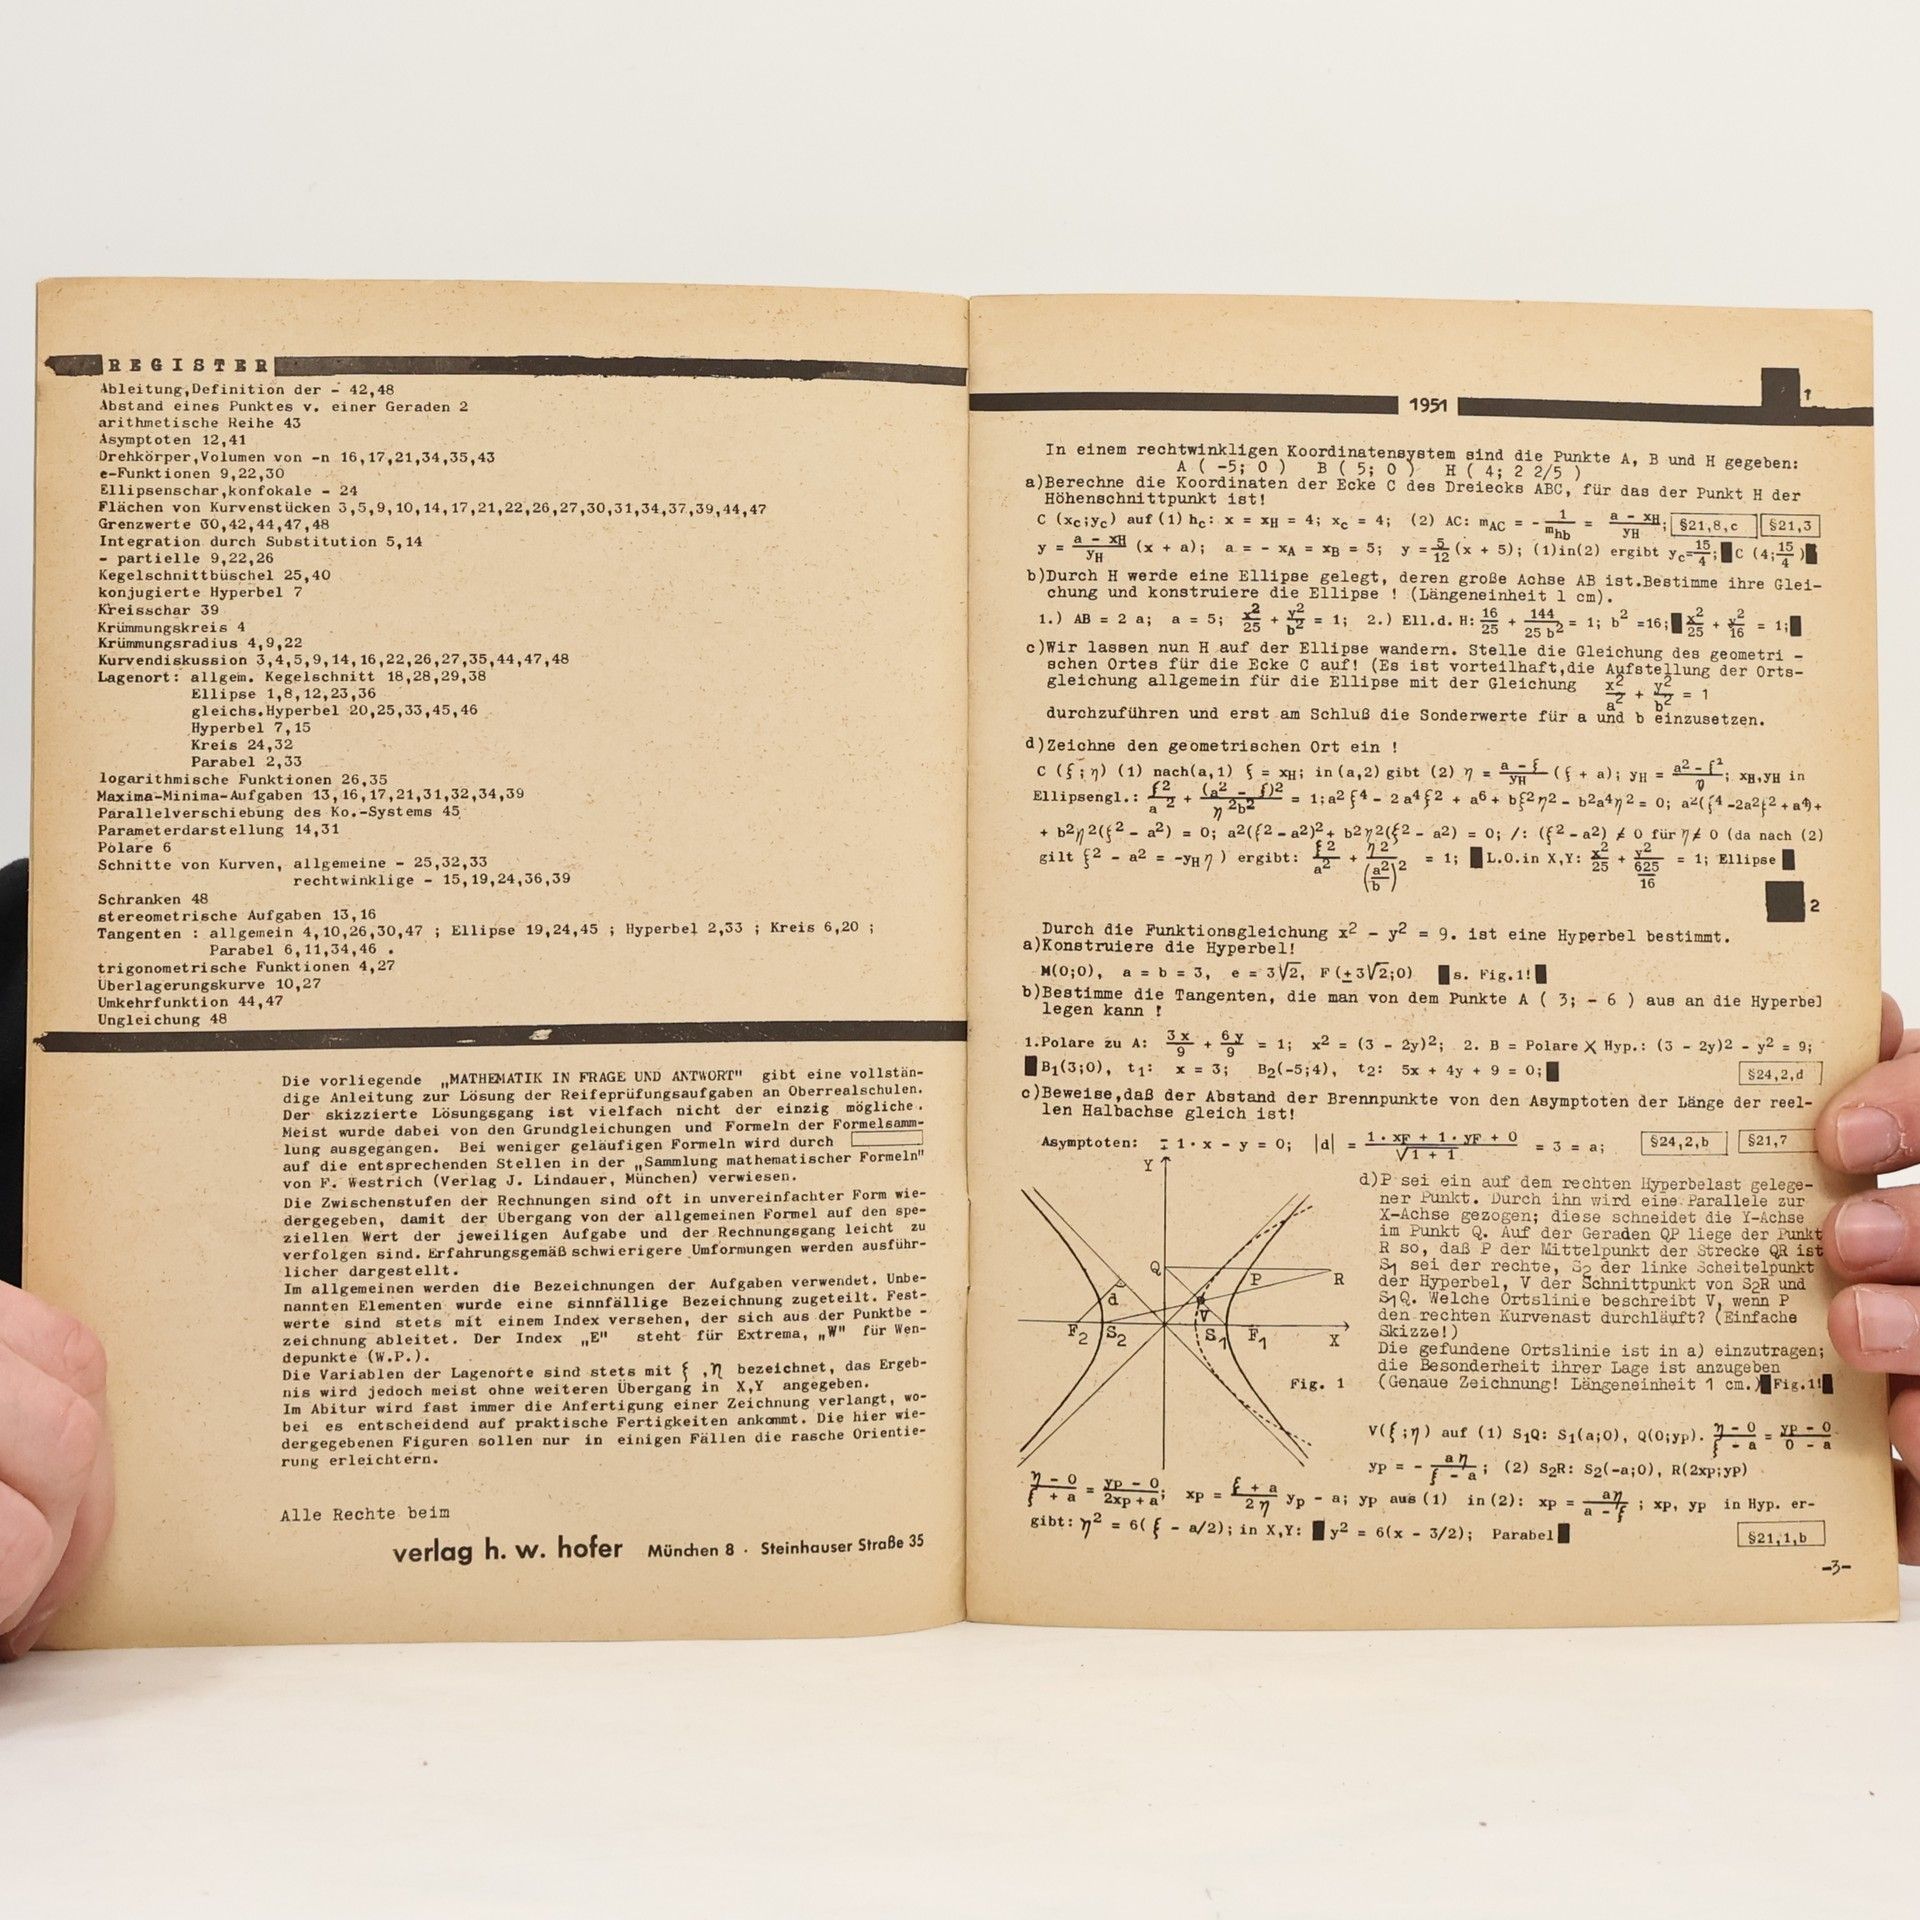 REGISTER
Ableitung,Definition der - 42,48
Abstand eines Punktes v. einer Geraden 2
arithmetische Reihe 43
Asymptoten 12,41
Drehkörper,Volumen von -n 16,17,21,34,35,43
e-Funktionen 9,22,30
Ellipsenschar,konfokale - 24
Flächen von Kurvenstücken 3,5,9,10,14,17,21,22,26,27,30,31,34,37,39,44,47
Grenzwerte 30,42,44,47,48
Integration durch Substitution 5,14
- partielle 9,22,26
Kegelschnittbüschel 25,40
konjugierte Hyperbel 7
Kreisschar 39
Krümmungskreis 4
Krümmungsradius 4,9,22
Kurvendiskussion 3,4,5,9,14,16,22,26,27,35,44,47,48
Lagenort: allgem. Kegelschnitt 18,28,29,38
Ellipse 1,8,12,23,36
gleichs.Hyperbel 20,25,33,45,46
Hyperbel 7,15
Kreis 24,32
Parabel 2,33
logarithmische Funktionen 26,35
Maxima-Minima-Aufgaben 13,16,17,21,31,32,34,39
Parallelverschiebung des Ko.-Systems 45
Parameterdarstellung 14,31
Polare 6
Schnitte von Kurven, allgemeine - 25,32,33
rechtwinklige - 15,19,24,36,39
Schranken 48
stereometrische Aufgaben 13,16
Tangenten : allgemein 4,10,26,30,47 ; Ellipse 19,24,45 ; Hyperbel 2,33 ; Kreis 6,20 ;
Parabel 6,11,34,46 .
trigonometrische Funktionen 4,27
Überlagerungskurve 10,27
Umkehrfunktion 44,47
Ungleichung 48
Die vorliegende „MATHEMATIK IN FRAGE UND ANTWORT" gibt eine vollstän-
dige Anleitung zur Lösung der Reifeprüfungsaufgaben an Oberrealschulen.
Der skizzierte Lösungsgang ist vielfach nicht der einzig mögliche.
Meist wurde dabei von den Grundgleichungen und Formeln der Formelsamm-
lung ausgegangen. Bei weniger geläufigen Formeln wird durch
auf die entsprechenden Stellen in der „Sammlung mathematischer Formeln"
von F. Westrich (Verlag J. Lindauer, München) verwiesen.
Die Zwischenstufen der Rechnungen sind oft in unvereinfachter Form wie-
dergegeben, damit der Übergang von der allgemeinen Formel auf den spe-
ziellen Wert der jeweiligen Aufgabe und der Rechnungsgang leicht zu
verfolgen sind. Erfahrungsgemäß schwierigere Umformungen werden ausführ-
licher dargestellt.
Im allgemeinen werden die Bezeichnungen der Aufgaben verwendet. Unbe-
nannten Elementen wurde eine sinnfällige Bezeichnung zugeteilt. Fest-
werte sind stets mit einem Index versehen, der sich aus der Punktbe -
zeichnung ableitet. Der Index „E" steht für Extrema, „W" für Wen-
depunkte (W.P.).
Die Variablen der Lagenorte sind stets mit ξ ,η bezeichnet, das Ergeb-
nis wird jedoch meist ohne weiteren Übergang in X,Y angegeben.
Im Abitur wird fast immer die Anfertigung einer Zeichnung verlangt, wo-
bei es entscheidend auf praktische Fertigkeiten ankommt. Die hier wie-
dergegebenen Figuren sollen nur in einigen Fällen die rasche Orientie-
rung erleichtern.
Alle Rechte beim
verlag h. w. hofer München 8 · Steinhauser Straße 35
1951
1
In einem rechtwinkligen Koordinatensystem sind die Punkte A, B und H gegeben:
A ( -5; 0 ) B ( 5; 0 ) H ( 4; 2 2/5 )
a)Berechne die Koordinaten der Ecke C des Dreiecks ABC, für das der Punkt H der
Höhenschnittpunkt ist!
C (xc;yc) auf (1) hc: x = xH = 4; xc = 4; (2) AC: mAC = - 1/mhb = (a - xH)/yH; §21,8,c §21,3
y = (a - xH)/yH (x + a); a = - xA = xB = 5; y = 5/12 (x + 5); (1)in(2) ergibt yc=15/4; C (4;15/4)
b)Durch H werde eine Ellipse gelegt, deren große Achse AB ist.Bestimme ihre Glei-
chung und konstruiere die Ellipse ! (Längeneinheit 1 cm).
1.) AB = 2 a; a = 5; x²/25 + y²/b² = 1; 2.) Ell.d. H: 16/25 + 144/25 b² = 1; b² =16; x²/25 + y²/16 = 1;
c)Wir lassen nun H auf der Ellipse wandern. Stelle die Gleichung des geometri -
schen Ortes für die Ecke C auf! (Es ist vorteilhaft,die Aufstellung der Orts-
gleichung allgemein für die Ellipse mit der Gleichung x²/a² + y²/b² = 1
durchzuführen und erst am Schluß die Sonderwerte für a und b einzusetzen.
d)Zeichne den geometrischen Ort ein !
C (ξ;η) (1) nach(a,1) ξ = xH; in(a,2) gibt (2) η = (a - ξ)/yH (ξ + a); yH = (a² - ξ²)/η; xH,yH in
Ellipsengl.: ξ²/a² + (a² - ξ)²/η²b² = 1;a²ξ⁴ - 2a⁴ξ² + a⁶ + bξ²η² - b²a⁴η² = 0; a²(ξ⁴-2a²ξ²+a⁴)+
+ b²η²(ξ² - a²) = 0; a²(ξ²-a²)²+ b²η²(ξ² - a²) = 0; /: (ξ²-a²) ≠ 0 für η≠ 0 (da nach (2)
gilt ξ² - a² = -yHη ) ergibt: ξ²/a² + η²/(a²/b)² = 1; L.O.in X,Y: x²/25 + y²/(625/16) = 1; Ellipse
2
Durch die Funktionsgleichung x² - y² = 9. ist eine Hyperbel bestimmt.
a)Konstruiere die Hyperbel!
M(0;0), a = b = 3, e = 3√2, F(±3√2;0) s. Fig.1!
b)Bestimme die Tangenten, die man von dem Punkte A ( 3; - 6 ) aus an die Hyperbel
legen kann !
1.Polare zu A: 3x/9 + 6y/9 = 1; x² = (3 - 2y)²; 2. B = Polare X Hyp.: (3 - 2y)2 - y² = 9;
B₁(3;0), t₁: x = 3; B₂(-5;4), t₂: 5x + 4y + 9 = 0; §24,2,d
c)Beweise,daß der Abstand der Brennpunkte von den Asymptoten der Länge der reel-
len Halbachse gleich ist!
Asymptoten: ∓ 1·x - y = 0; |d| = (1·xF + 1·yF + 0)/√(1 + 1) = 3 = a; §24,2,b §21,7
Y
Q
P
R
d
V
F₂
S₂
S₁
F₁
X
Fig. 1
d)P sei ein auf dem rechten Hyperbelast gelege-
ner Punkt. Durch ihn wird eine Parallele zur
X-Achse gezogen; diese schneidet die Y-Achse
im Punkt Q. Auf der Geraden QP liege der Punkt
R so, daß P der Mittelpunkt der Strecke QR ist
S₁ sei der rechte, S₂ der linke Scheitelpunkt
der Hyperbel, V der Schnittpunkt von S₂R und
S₁Q. Welche Ortslinie beschreibt V, wenn P
den rechten Kurvenast durchläuft? (Einfache
Skizze!)
Die gefundene Ortslinie ist in a) einzutragen;
die Besonderheit ihrer Lage ist anzugeben
(Genaue Zeichnung! Längeneinheit 1 cm.) Fig.1!
V(ξ;η) auf (1) S₁Q: S₁(a;0), Q(0;yp). (η - 0)/(ξ - a) = (yp - 0)/(0 - a)
yp = - aη/(ξ - a); (2) S₂R: S₂(-a;0), R(2xp;yp)
(η - 0)/(ξ + a) = (yp - 0)/(2xp + a); xp = (ξ + a)/2η yp - a; yp aus(1) in(2): xp = aη/(a - ξ) ; xp, yp in Hyp. er-
gibt: η² = 6(ξ - a/2); in X,Y: y² = 6(x - 3/2); Parabel §21,1,b
-3-